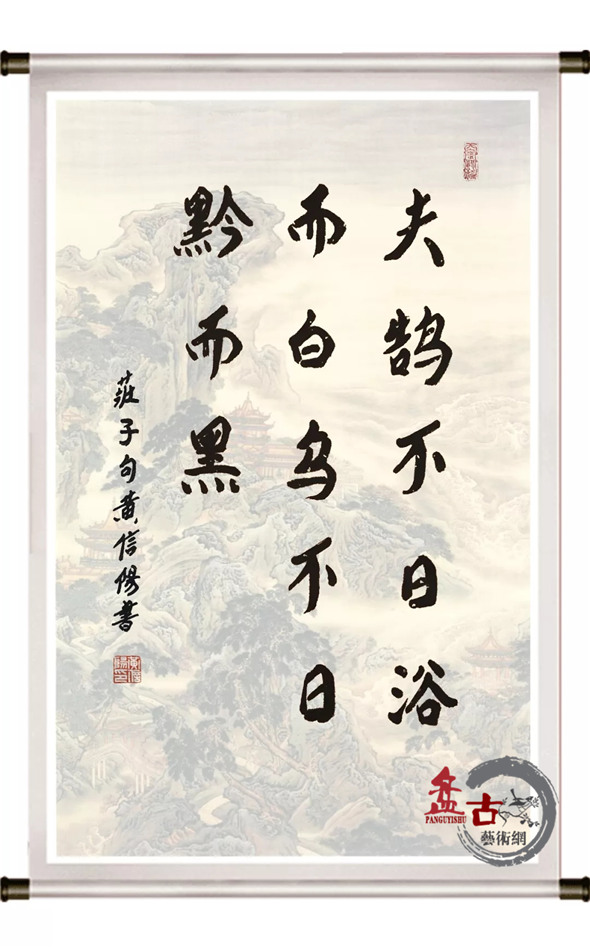 夫鹄不日浴
而白乌不日
黔而黑
莊子句黄信陽書
盘古
PANGUYISHU
藝術網